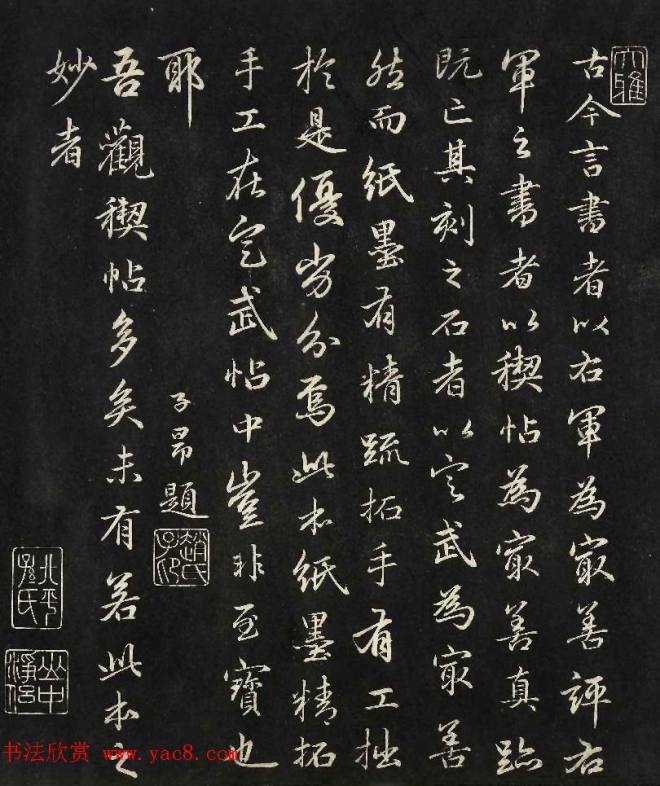 大雅
古今言書者以右軍為冣善評右
軍之書者以稧帖為冣善真跡
既亡其刻之石者以定武為冣善
然而紙墨有精疏拓手有工拙
於是優劣分焉此本紙墨精拓
手工在定武帖中豈非至寶也
耶 子昂題
趙氏子昂
吾觀稧帖多矣未有若此本之
妙者
北平孫氏
书法欣赏 www.yac8.com